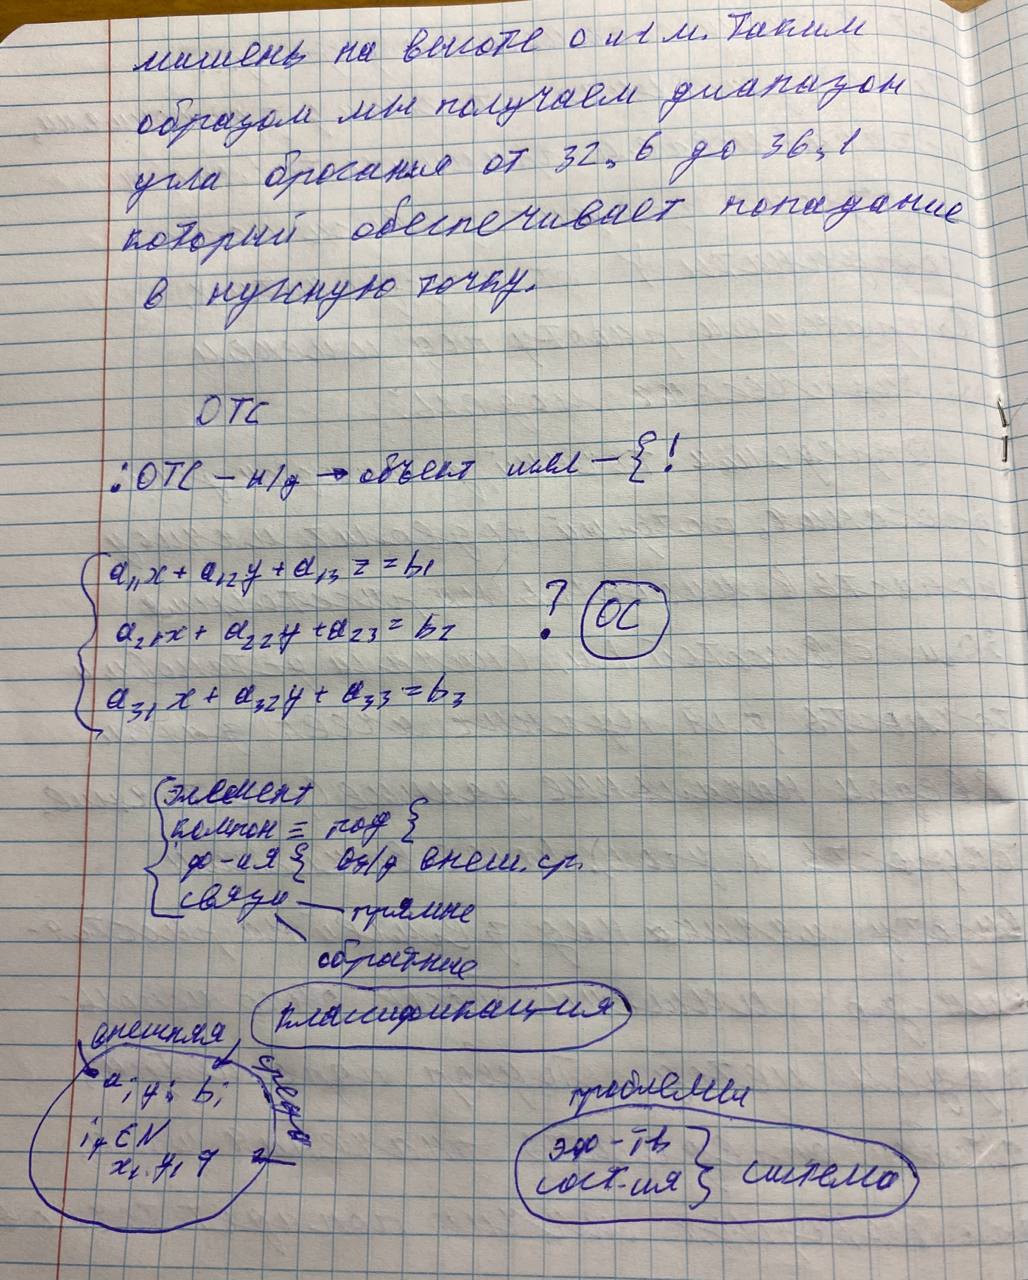 мишень на высоте 0 и 1 м. Таким
образом мы получаем диапазон
угла бросания от 32,6 до 36,1
который обеспечивает попадание
в нужную точку.
ОТС
: ОТС – н/д → объект – { !
a₁₁x + a₁₂y + a₁₃z = b₁
a₂₁x + a₂₂y + a₂₃ = b₂
a₃₁x + a₃₂y + a₃₃ = b₃
? ОС
элемент
компон = под {
ф-ия { внеш. ср.
связи — прямые
обратные
классификация
внешняя среда
проблемы
эф-ть
сост-ия } система